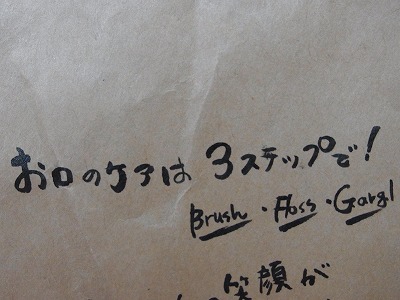 お口のケアは 3ステップで!
Brush・Floss・Gargl
笑顔が